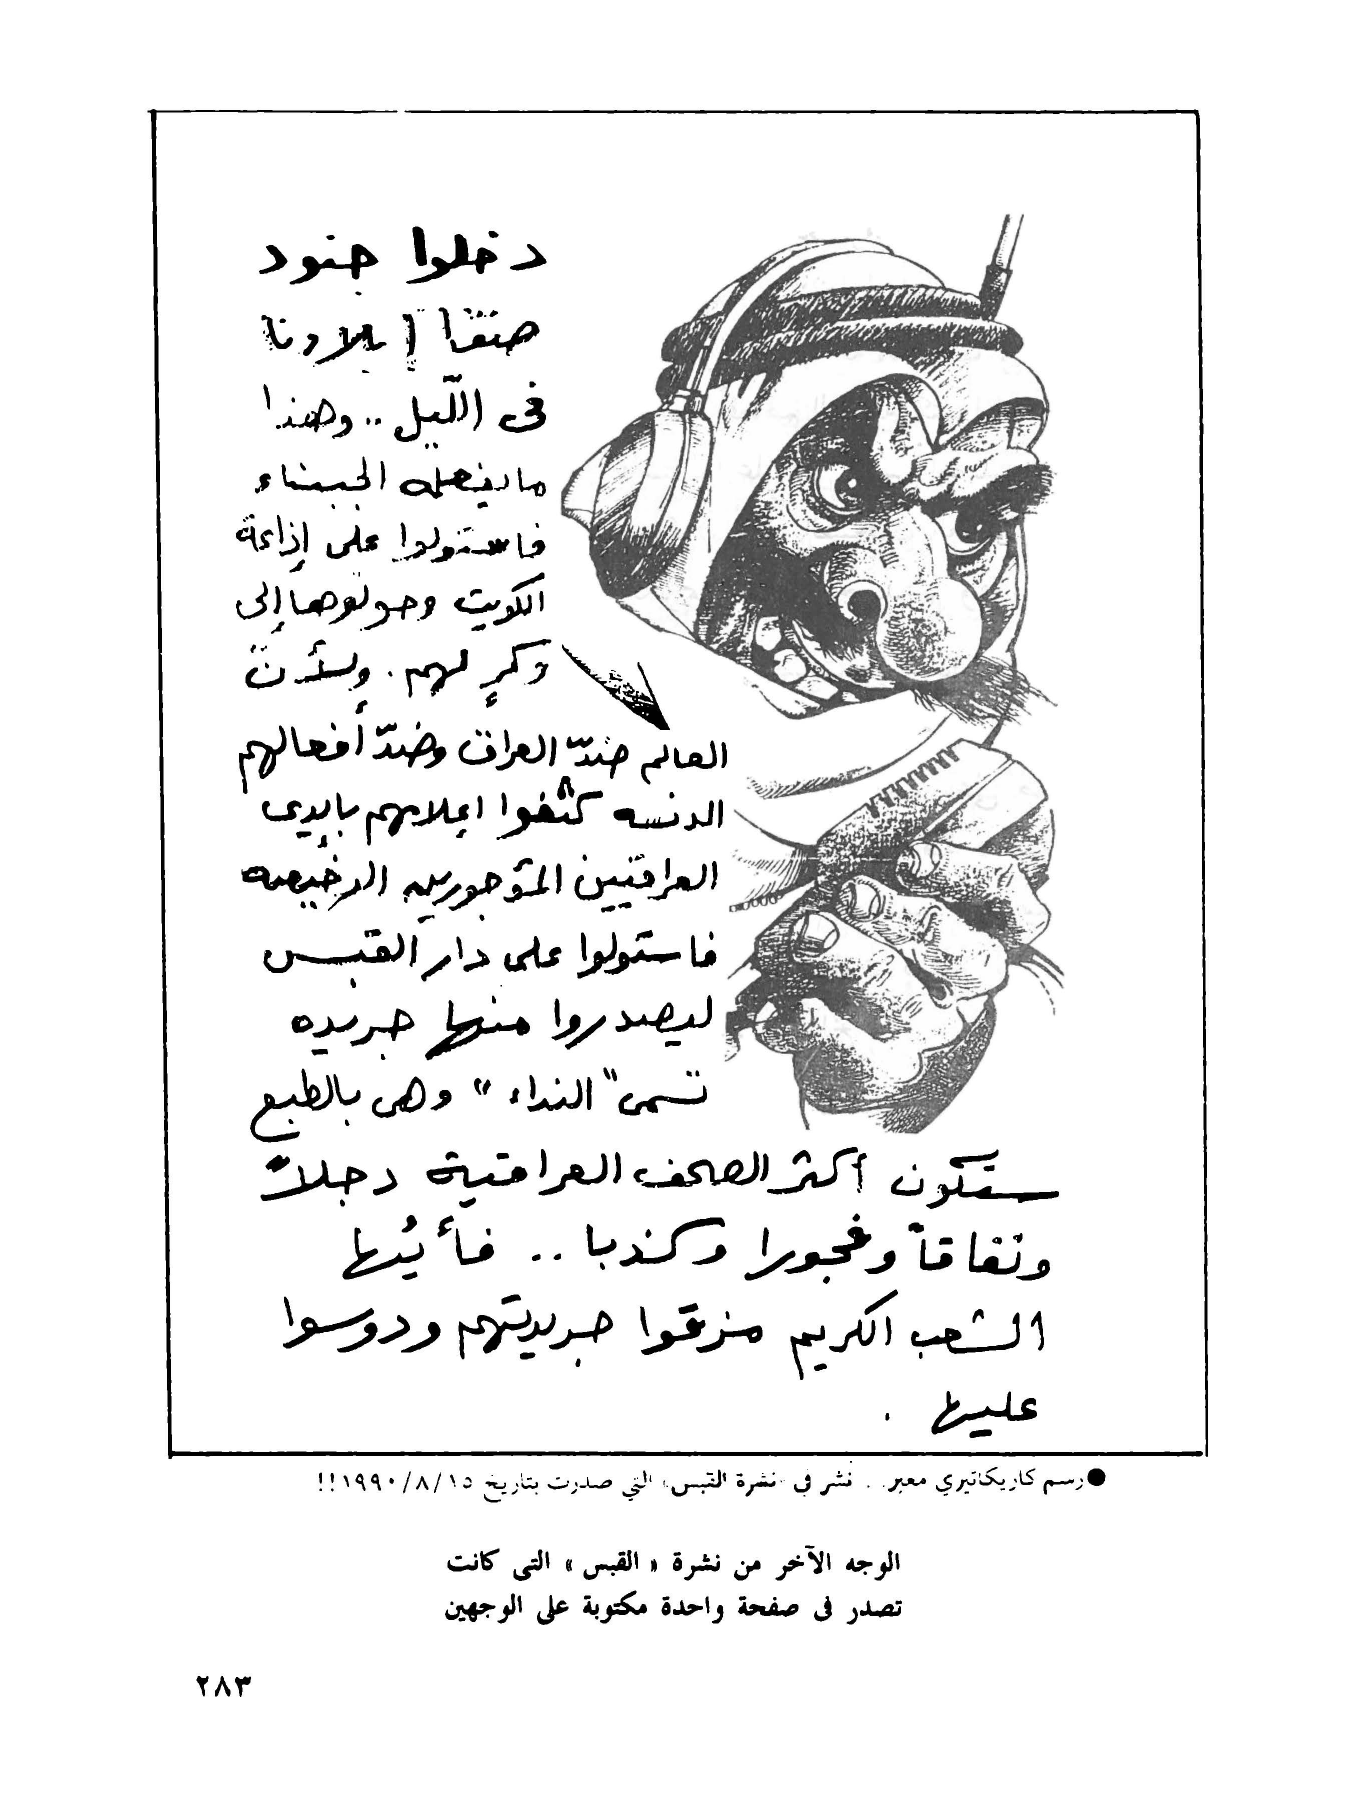 دخلوا جنود
صدّام بلادنا
في اللّيل .. وهذا
ما يفعله الجبناء
فاستولوا على إذاعة
الكويت وحولوها إلى
وكرٍ لهم . ولأن
العالم ضدّ العراق وضدّ أفعالهم
الدنسه كثفوا إعلامهم بايدي
العراقيين المؤجورين الرخيصه
فاستولوا على دار القبس
ليصدروا منها جريده
تسمى "النداء" وهي بالطبع
ستكون أكثر الصحف العراقية دجلاً
ونفاقاً وفجورا وكذبا .. فأيُها
الشعب الكريم مزقوا جريدتهم ودوسوا
عليها .
● رسم كاريكاتيري معبر . . نشر في «نشرة القبس» التي صدرت بتاريخ ١٩٩٠/٨/١٥!!
الوجه الآخر من نشرة « القبس » التى كانت
تصدر فى صفحة واحدة مكتوبة على الوجهين
٢٨٣